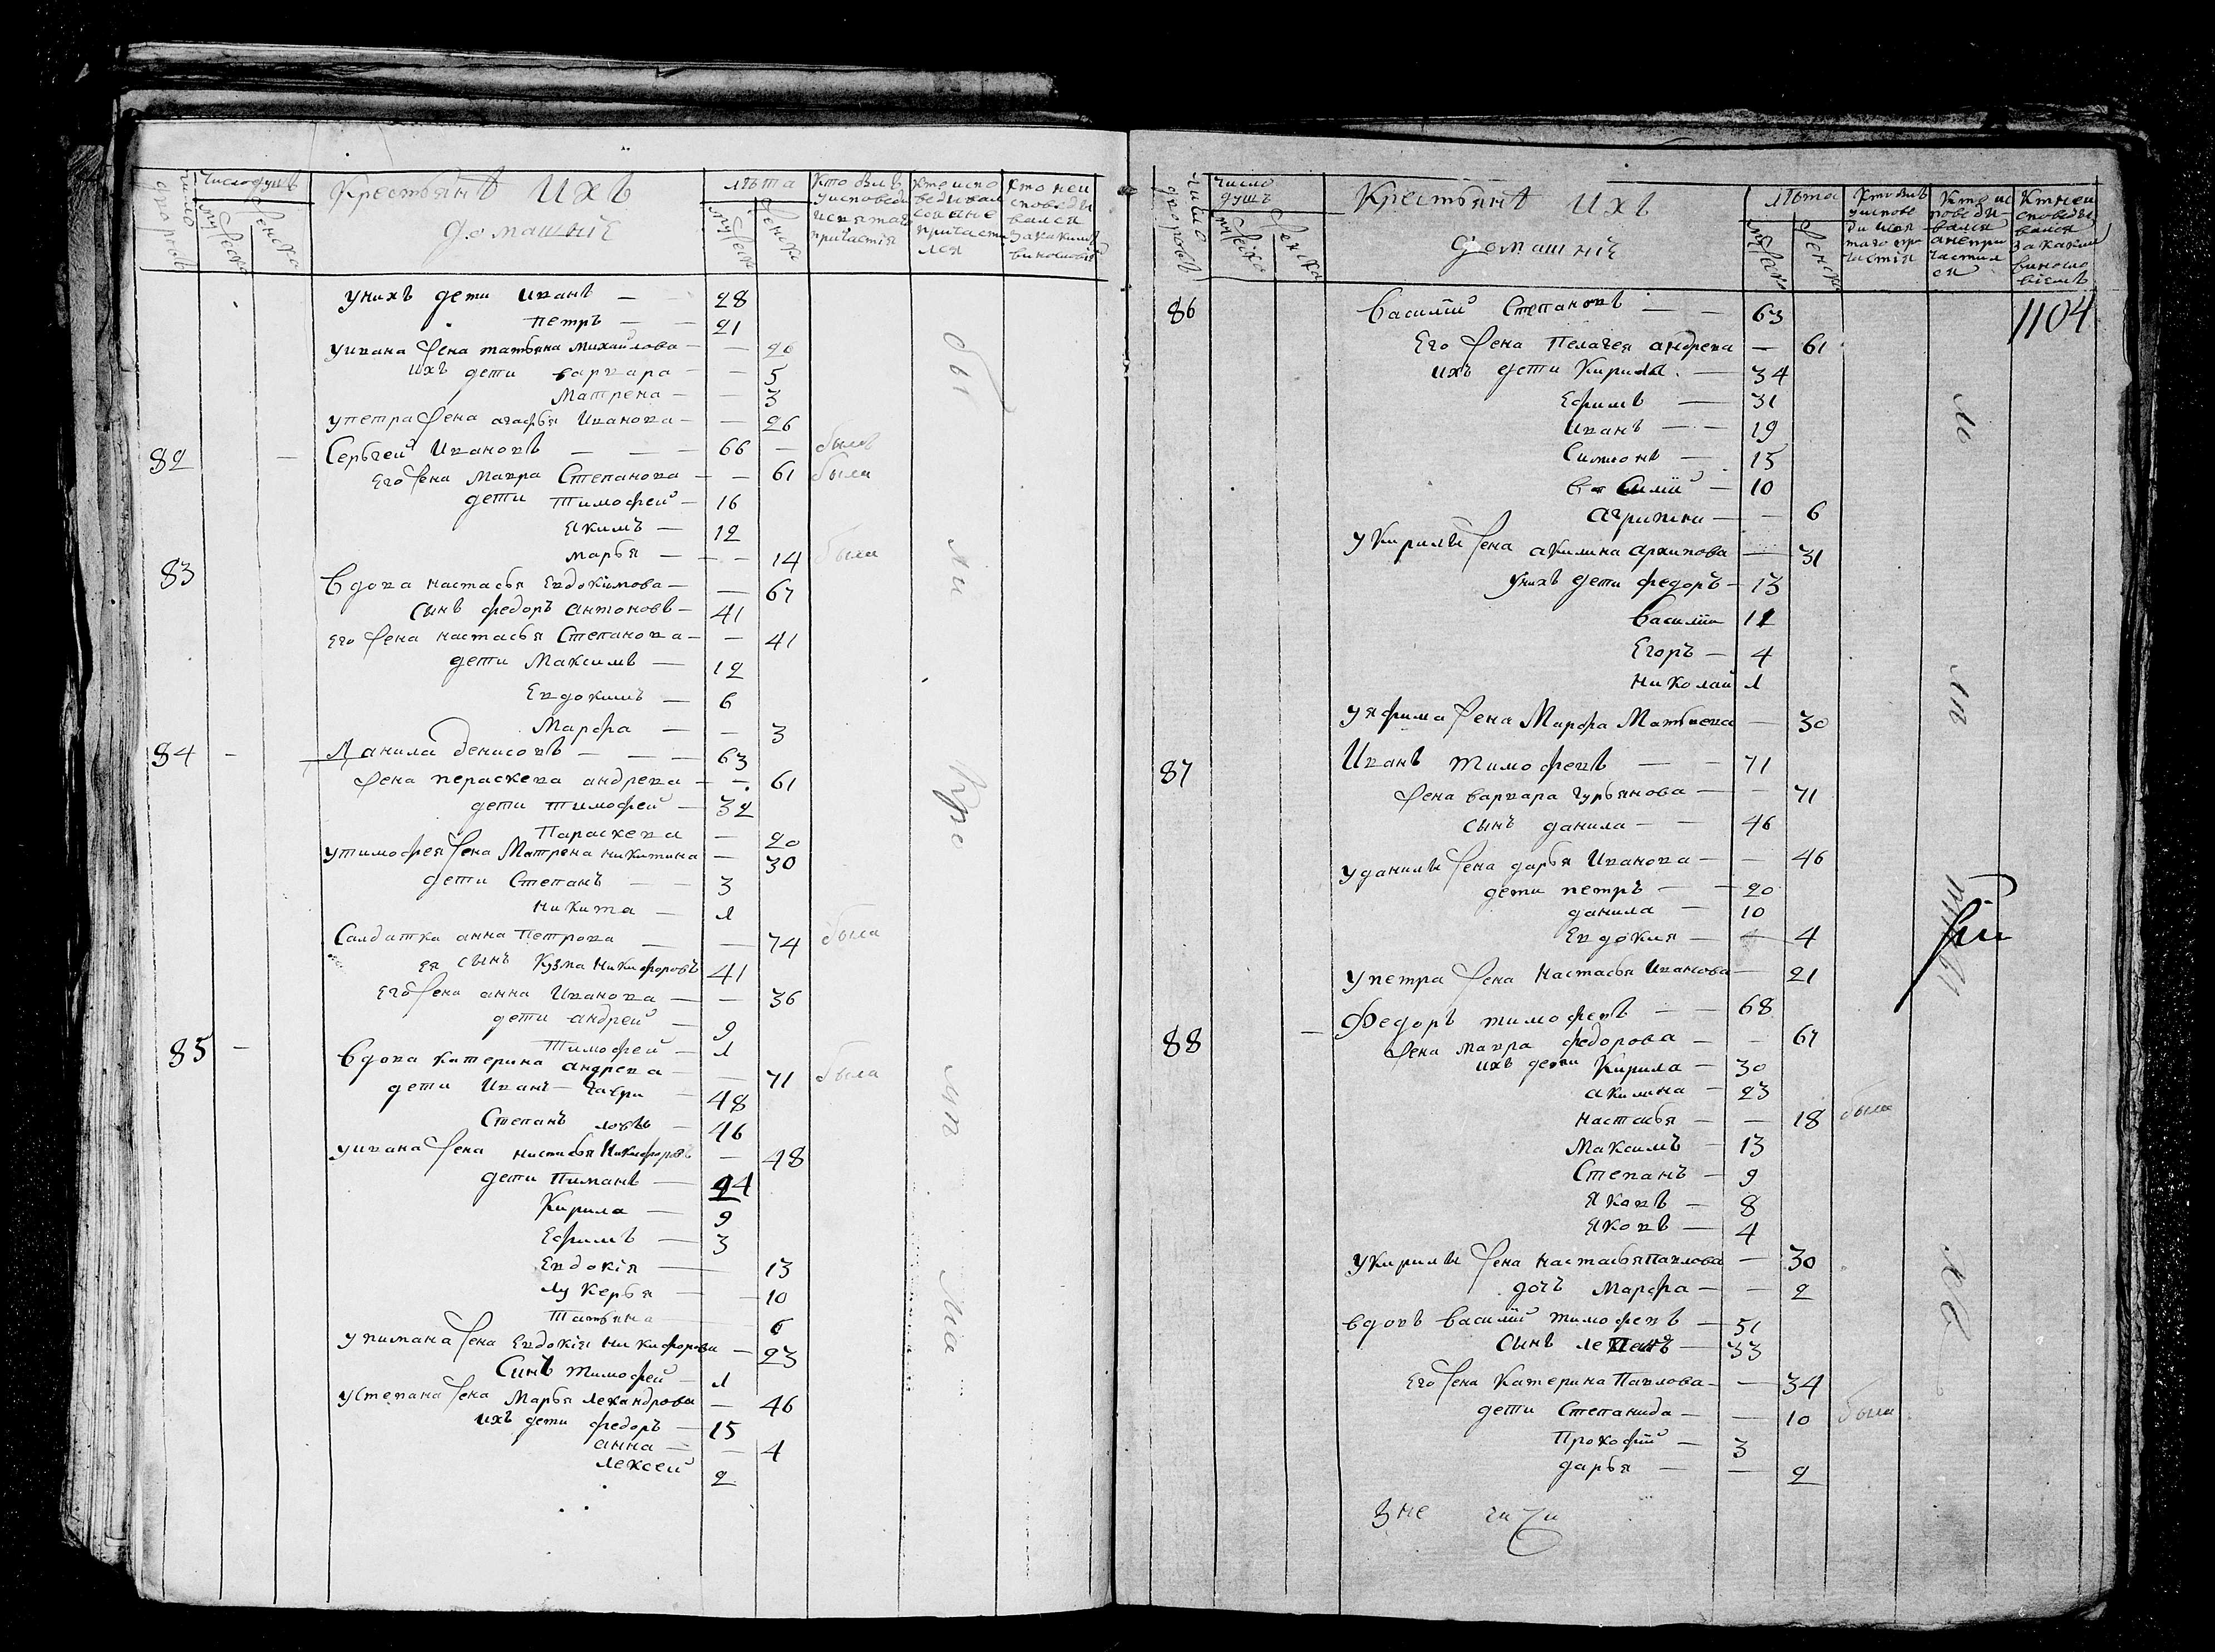 число дворовъ
число душъ
мужеска
женска
Крестьянъ ихъ
домашнiе
лѣта
мужеск
женска
кто былъ
у исповеди
и святаго
причастiя
кто испо
ведивал
ся а не
причасти
лся
кто не и
споведы
вался
за какимъ
виносло
унихъ дети иванъ — 28
петръ — 21
уивана жена татьяна михайлова — 26
ихъ дети варвара — 5
матрена — 3
упетра жена агафья иванова — 26
82 Сергей ивановъ — 66 былъ
его жена мавра степанова — 61 была
дети тимофей — 16
якимъ — 12
марья — 14 была
83 вдова настасья евдокiмова — 67
сынъ федоръ антоновъ — 41
его жена настасья степанова — 41
дети максимъ — 12
евдокимъ — 6
марфа — 3
84 — данила денисовъ — 63
жена пераскева андрева — 61
дети тимофей — 32
параскева — 20
утимофея жена матрена никитина — 30
дети степанъ — 3
никита — 1
салдатка анна петрова — 74 была
ея сынъ кузма никифоровъ 41
его жена анна иванова — 36
дети андрей — 9
тимофей — 1
85 — вдова катерина андрева — 71 была
дети иванъ — 48
степанъ — 46
уивана жена настасья никифоровъ — 48
дети пиманъ — 24
кирила — 9
ефимъ — 3
евдокiя — 13
лукерья — 10
татьяна — 6
упимана жена евдокiя никифорова — 23
синъ тимофей — 1
устепана жена марья лександрова — 46
ихъ дети федоръ — 15
анна — 4
лексей 2
число дворовъ
число
душъ
мужеска
женска
Крестьянъ ихъ
домашнiе
лѣта
мужск
женск
кто былъ
у испове
ди и свя
таго при
частiя
кто ис
поведи-
вался
а непри
частил
ся
кто не и
споведы
вался
за каким
виносло
вiемъ
1104
86 василiй степановъ — 63
его жена пелагея андрева — 61
ихъ дети кирила — 34
ефимъ — 31
иванъ — 19
симионъ — 15
василiй — 10
агрипина — 6
укирилы жена акилина архипова — 31
унихъ дети федоръ — 13
василiи 11
егоръ — 4
николай 1
уяфима жена марфа матвиева — 30
87 иванъ тимофевъ — 71
жена варвара гурьянова — 71
сынъ данила — 46
уданилы жена дарья иванова — 46
дети петръ — 20
данила — 10
евдокия — 4
упетра жена настасья иванова — 21
88 — федоръ тимофевъ — 68
жена мавра федорова — 67
ихъ дети кирила — 30
акилина — 23
настасья — 18 была
максимъ — 13
степанъ — 9
яковъ — 8
яковъ — 4
укирилы жена настасья павлова — 30
дочъ марфа — 2
вдовъ василiй тимофевъ — 51
сынъ лепатъ — 33
его жена катерина павлова — 34
дети степанида — 10 была
прокофiй — 3
дарья — 2